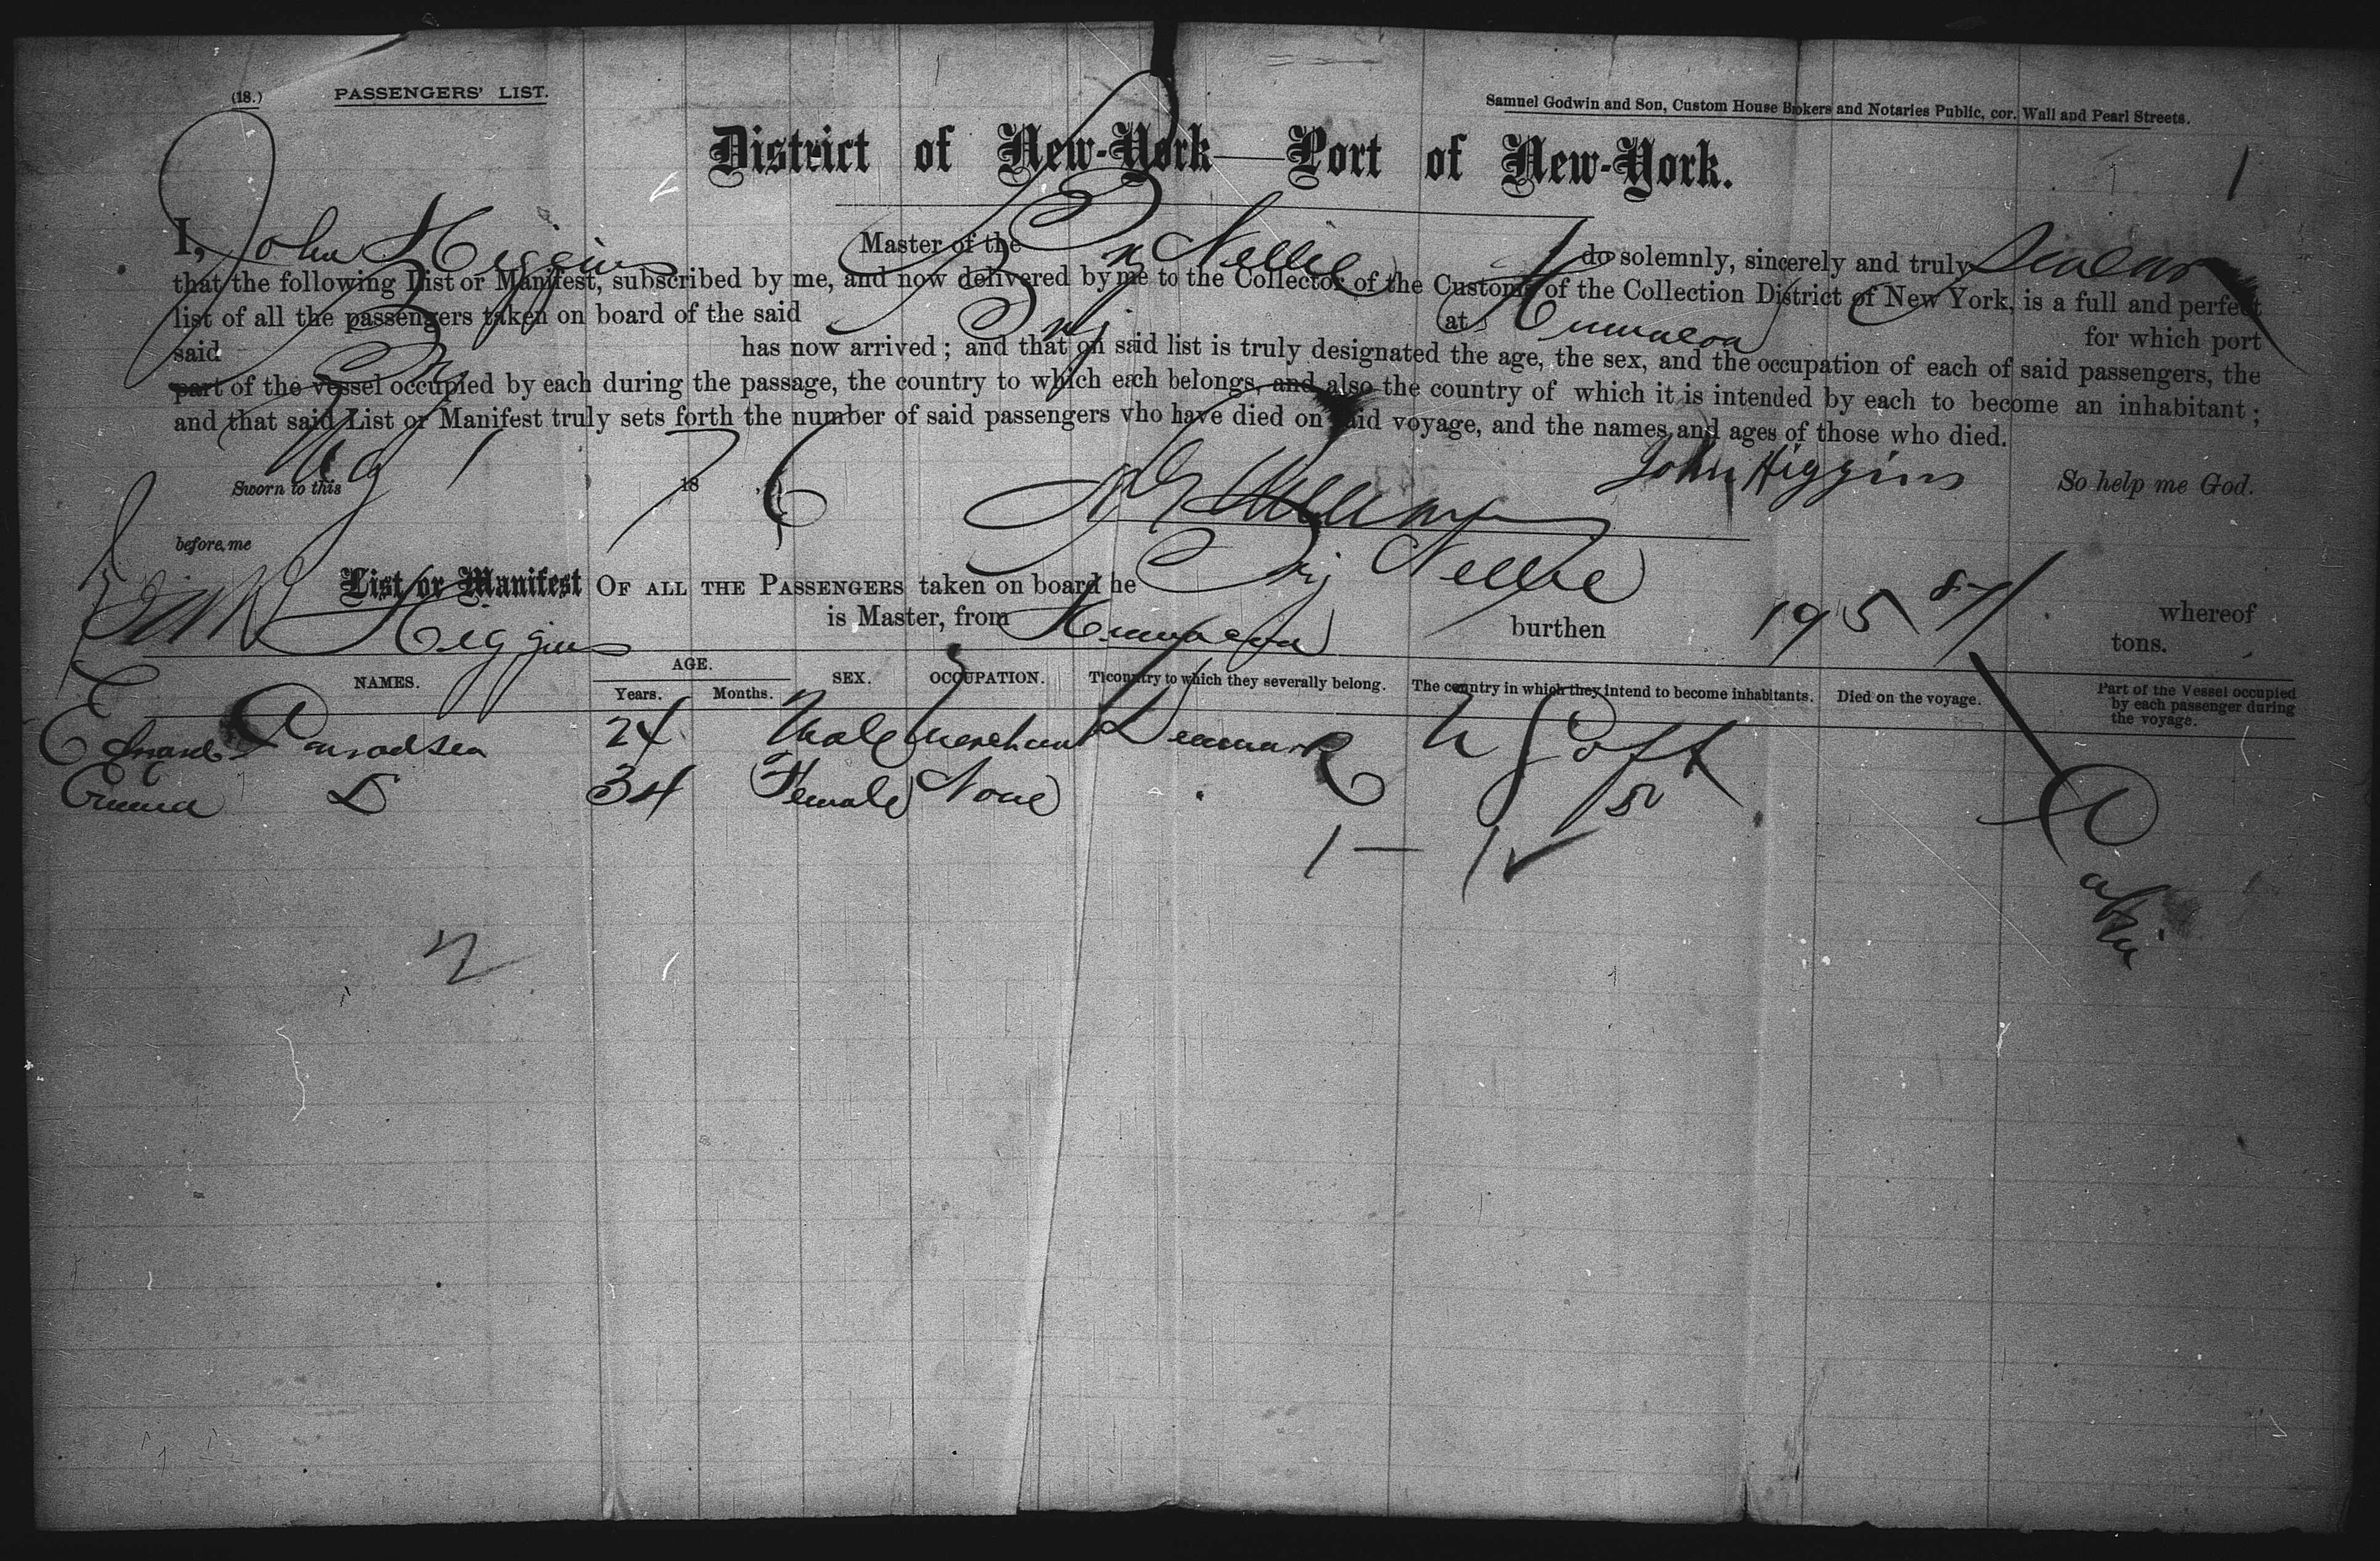 (18.) PASSENGERS' LIST.
Samuel Godwin and Son, Custom House Brokers and Notaries Public, cor. Wall and Pearl Streets.
District of New-York—Port of New-York.
1
I, John Higgins Master of the Brig Nellie do solemnly, sincerely and truly swear
that the following List or Manifest, subscribed by me, and now delivered by me to the Collector of the Customs of the Collection District of New York, is a full and perfect
list of all the passengers taken on board of the said Brig at Humacoa for which port
said Brig has now arrived; and that on said list is truly designated the age, the sex, and the occupation of each of said passengers, the
part of the vessel occupied by each during the passage, the country to which each belongs, and also the country of which it is intended by each to become an inhabitant;
and that said List or Manifest truly sets forth the number of said passengers who have died on said voyage, and the names and ages of those who died.
Sworn to this Aug 1 1876 John Higgins So help me God.
before me
List or Manifest OF ALL THE PASSENGERS taken on board he Brig Nellie whereof
Higgins is Master, from Humacoa burthen 195 87/ tons.
NAMES. AGE. Years. Months. SEX. OCCUPATION. T country to which they severally belong. The country in which they intend to become inhabitants. Died on the voyage. Part of the Vessel occupied by each passenger during the voyage.
24 Male Merchant Denmark Cabin
Emma D 34 Female None
1 — 1 ✓
2